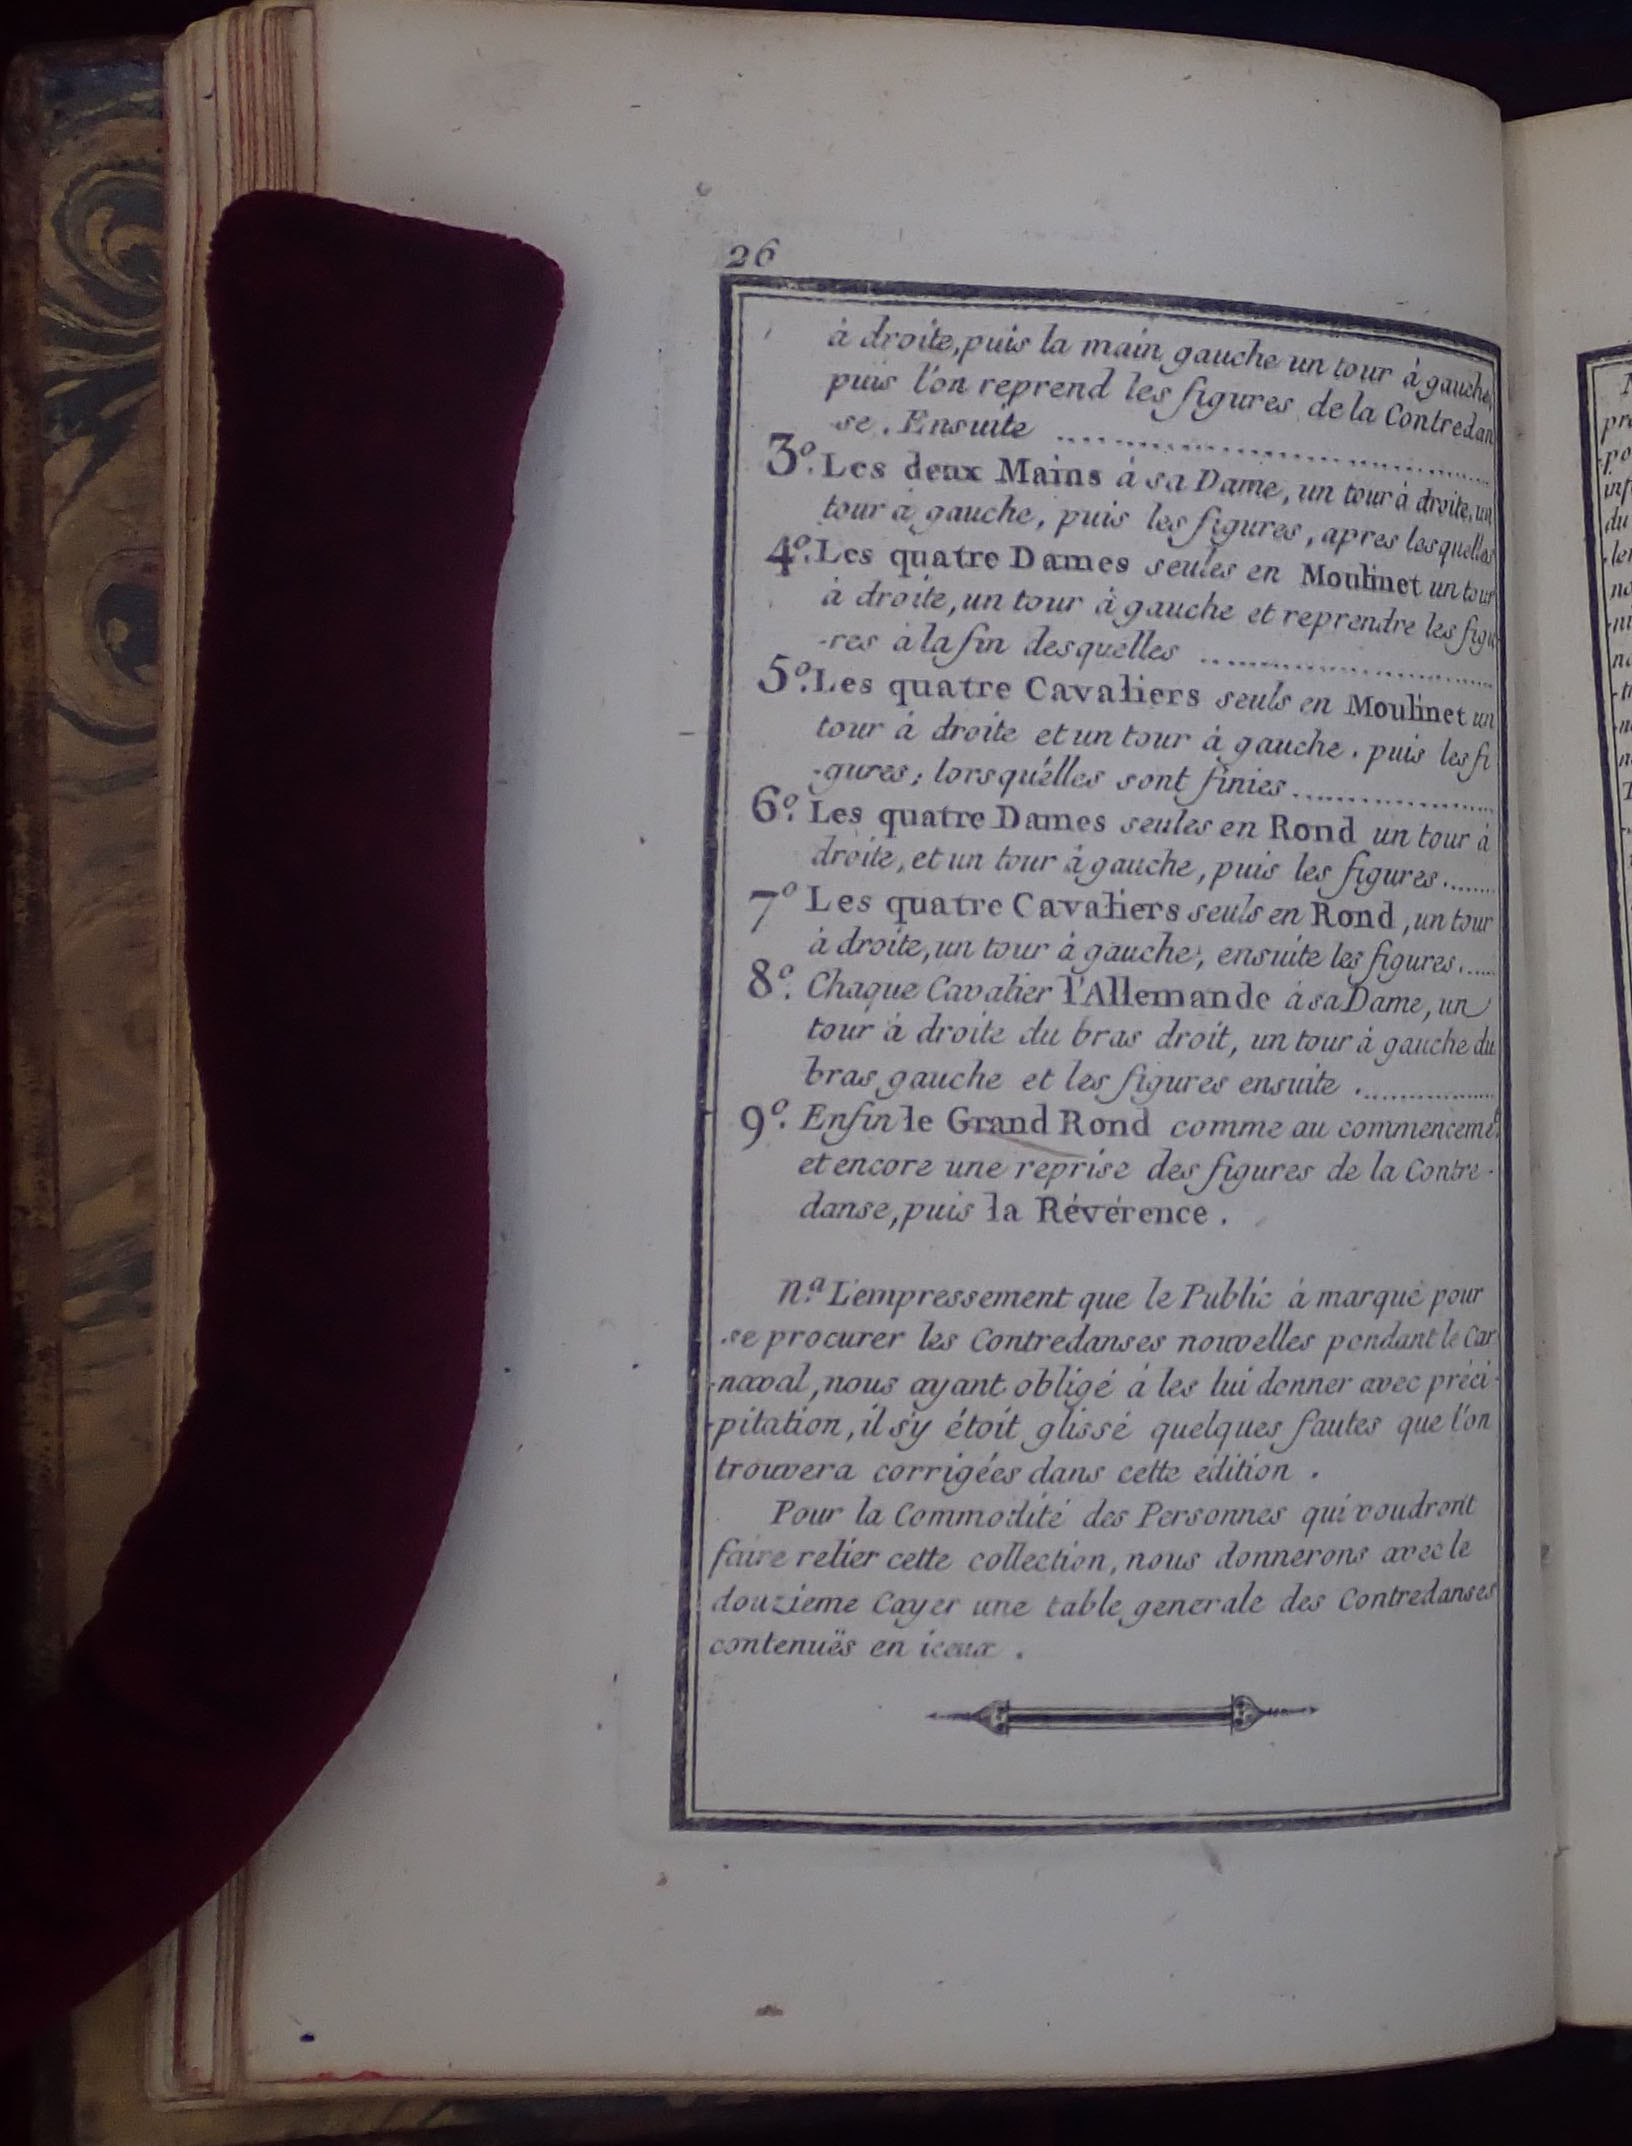 26
à droite, puis la main gauche un tour à gauche,
puis l'on reprend les figures de la Contredan
-se. Ensuite ..........
3º. Les deux Mains à sa Dame, un tour à droite, un
tour à gauche, puis les figures, apres lesquelles
4º. Les quatre Dames seules en Moulinet un tour
à droite, un tour à gauche et reprendre les figu
-res à la fin desquelles ..........
5º. Les quatre Cavaliers seuls en Moulinet un
tour à droite et un tour à gauche. puis les fi
-gures; lorsqu'élles sont finies ..........
6º. Les quatre Dames seules en Rond un tour à
droite, et un tour à gauche, puis les figures.......
7º Les quatre Cavaliers seuls en Rond, un tour
à droite, un tour à gauche, ensuite les figures......
8º. Chaque Cavalier l'Allemande à sa Dame, un
tour à droite du bras droit, un tour à gauche du
bras gauche et les figures ensuite ...........
9º. Enfin le Grand Rond comme au commencemt.
et encore une reprise des figures de la Contre-
danse, puis la Révérence.
Nª. L'empressement que le Public à marqué pour
se procurer les Contredanses nouvelles pendant le Car
-naval, nous ayant obligé à les lui donner avec préci-
-pitation, il s'y étoit glissé quelques fautes que l'on
trouvera corrigées dans cette édition.
Pour la Commodité des Personnes qui voudront
faire relier cette collection, nous donnerons avec le
douzieme Cayer une table generale des Contredanses
contenuës en iceux.
pré
-po
inf
du